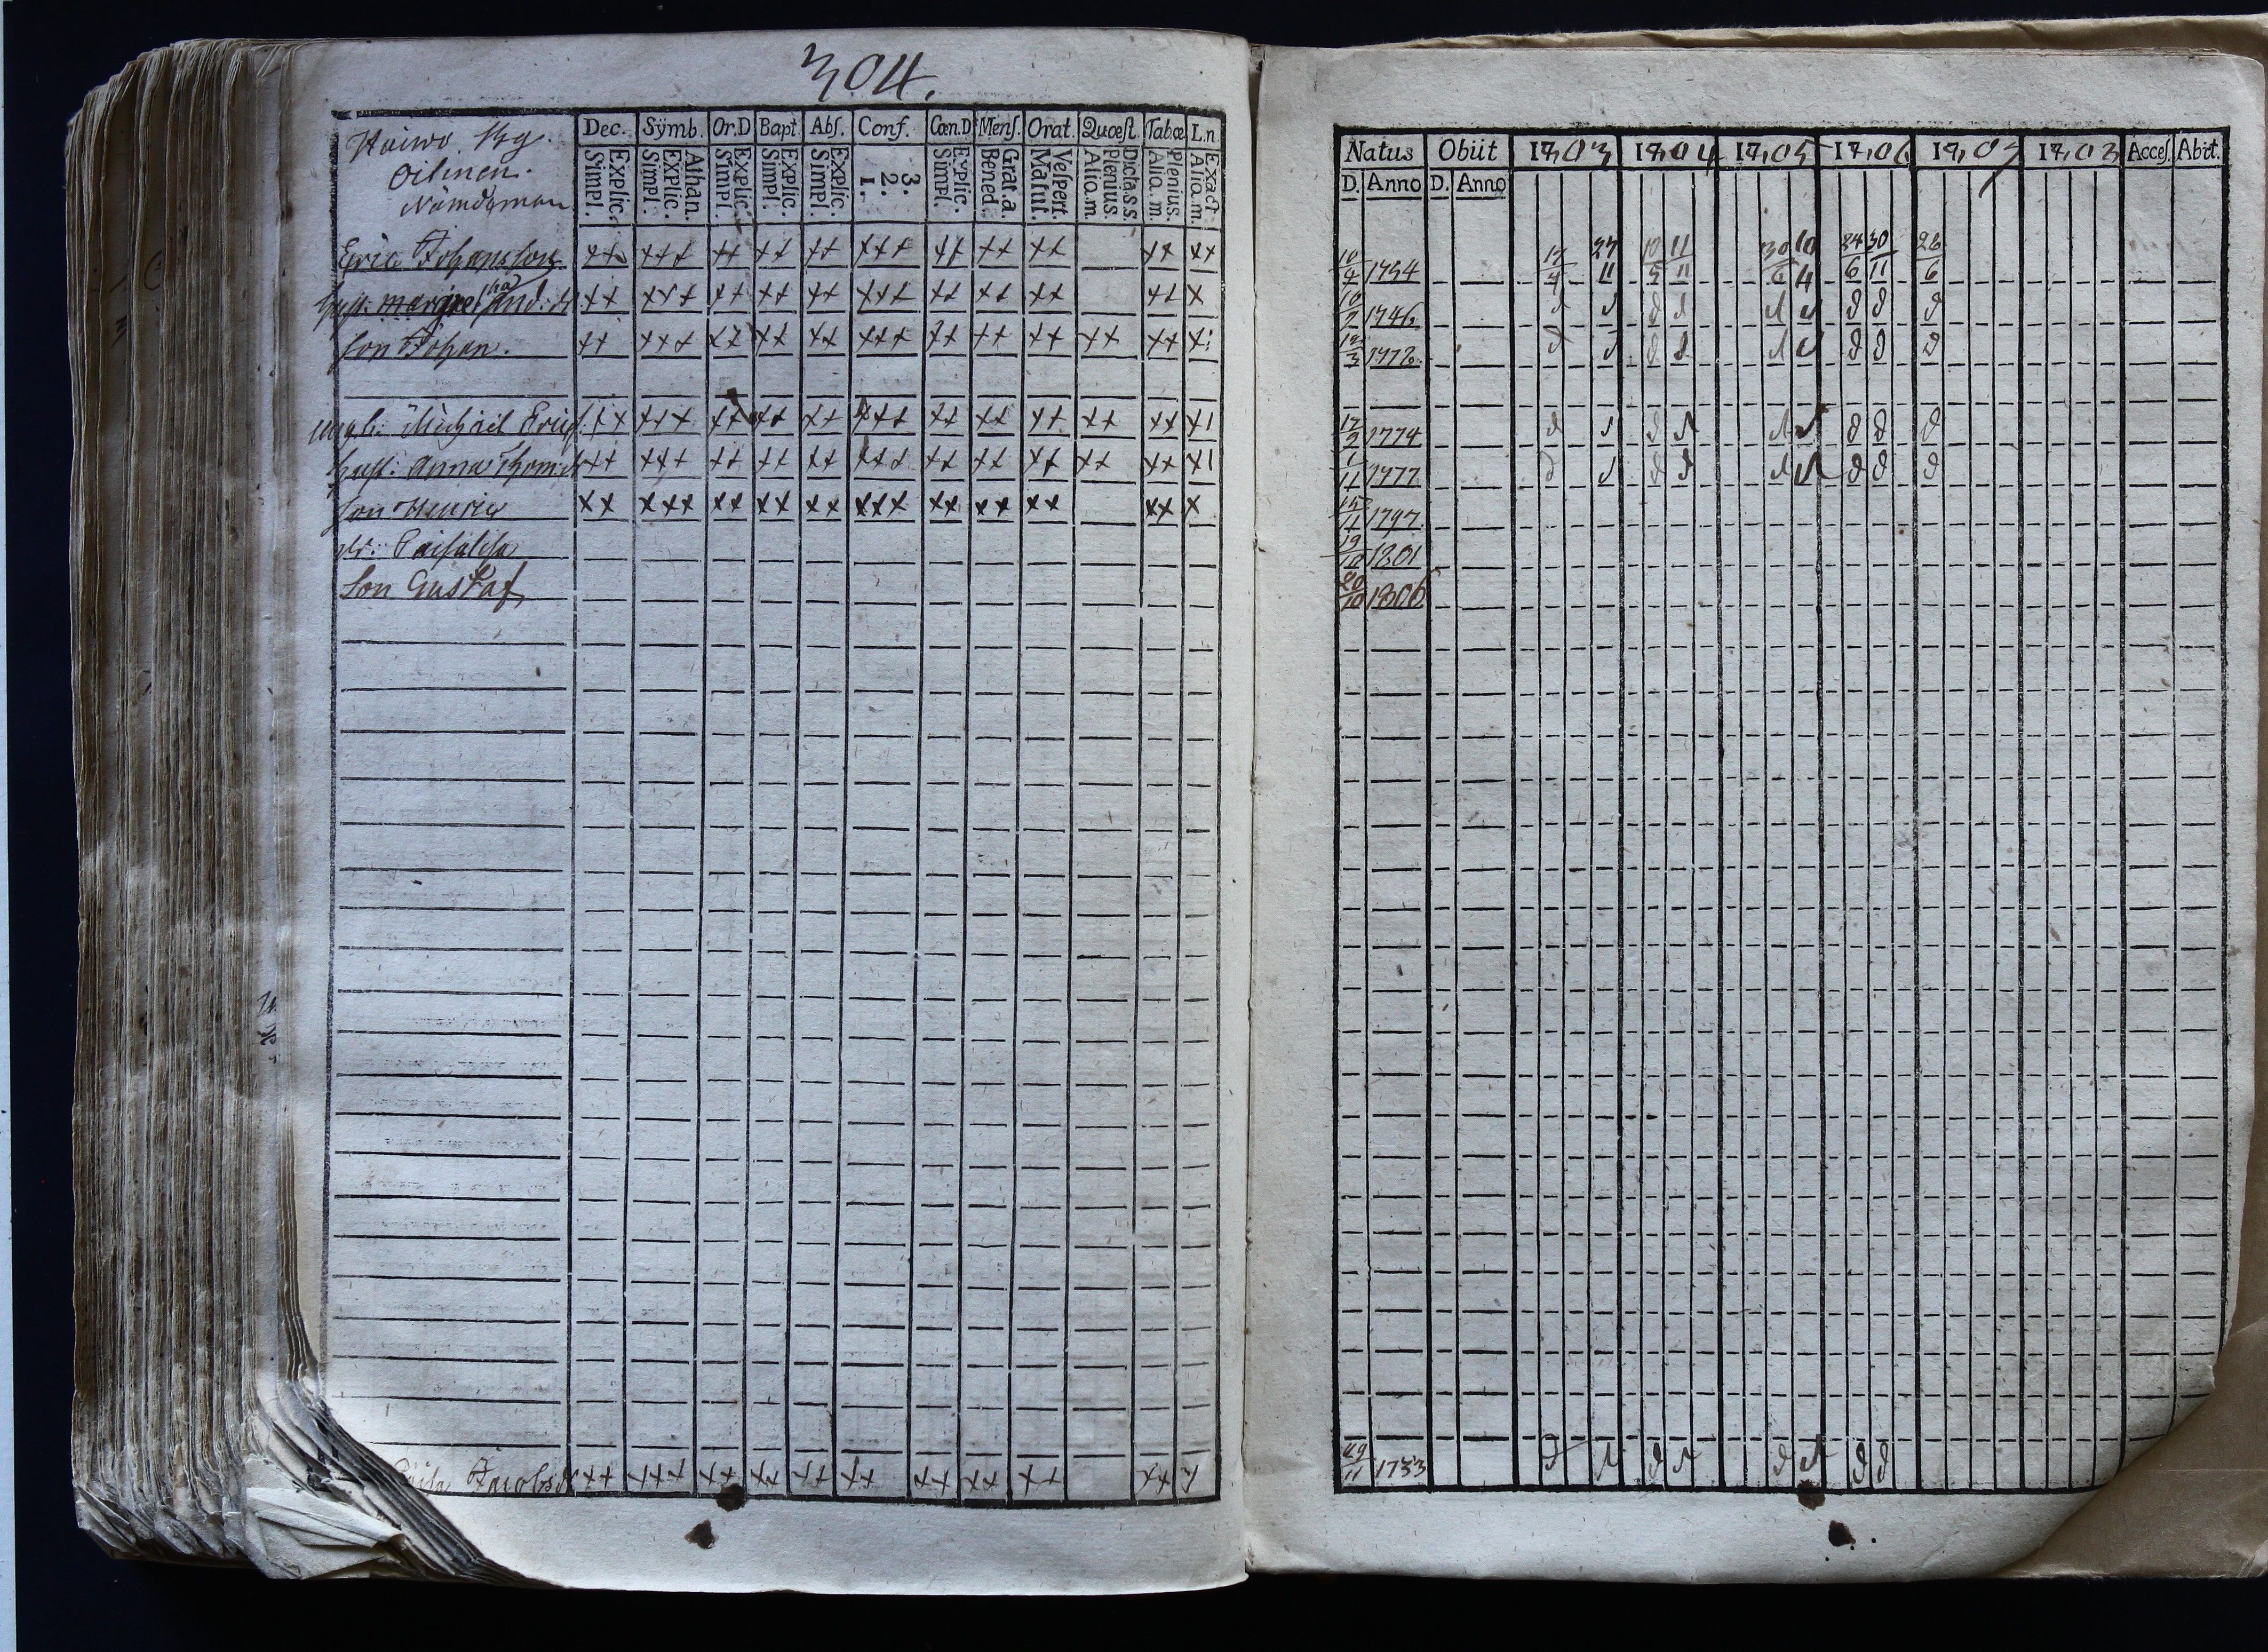 304.
Dec. Sÿmb. Or.D Bapt. Abſ. Conf. Cœn.D Menſ. Orat. Quœeſt. Tab.œ L.n.
Simpl. Explic. Simpl. Explic. Athan. Simpl. Explic. Simpl. Explic. Simpl. Explic. 1. 2. 3. Simpl. Explic. Bened. Grat.a. Matut. Veſpert. Alio.m. Plenius. Dicta s.s. Alio.m. Plenius. Alio.m. Exact
Natus Obiit 17,03 17,04 17,05 17,06 17,07 17,03 Acceſ. Abiit.
D. Anno D. Anno
Haiwo By
Oilinen.
Nämdeman
Eric Johansson xx xxx xx xx xx xxx xx xx xx xx xx 10/4 1754 24/6 30/11 26/6
hust. margret And: dr xx xxx xx xx xx xxx xx xx xx xx x 10/2 1746
son Johan. xx xxx xx xx xx xxx xx xx xx xx xx 12/3 1772
Michel Erics xxx xx xx xx xxx xx xx xx xx xx 12/2 1774
hust: Anna Thom.dr xx xxx xx xx xx xxx xx xx xx xx xx 1/11 1777
son Henric xx xxx xx xx xx xxx xx xx xx xx x 15/11 1797
dr: Caisa Lisa 19/10 1801
Son Gustaf 20/10 1806
Jacobsdr xx xxx xx xx xx xx xx xx xx xx x 29/11 1733